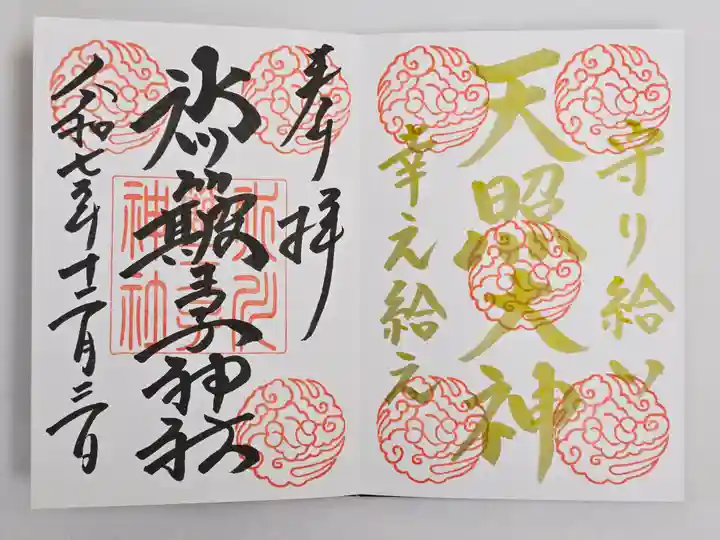 守り給い
天照大神
幸え給え
奉拝
氷川簸王子神社
令和七年十二月三日
氷川
簸王子
神社